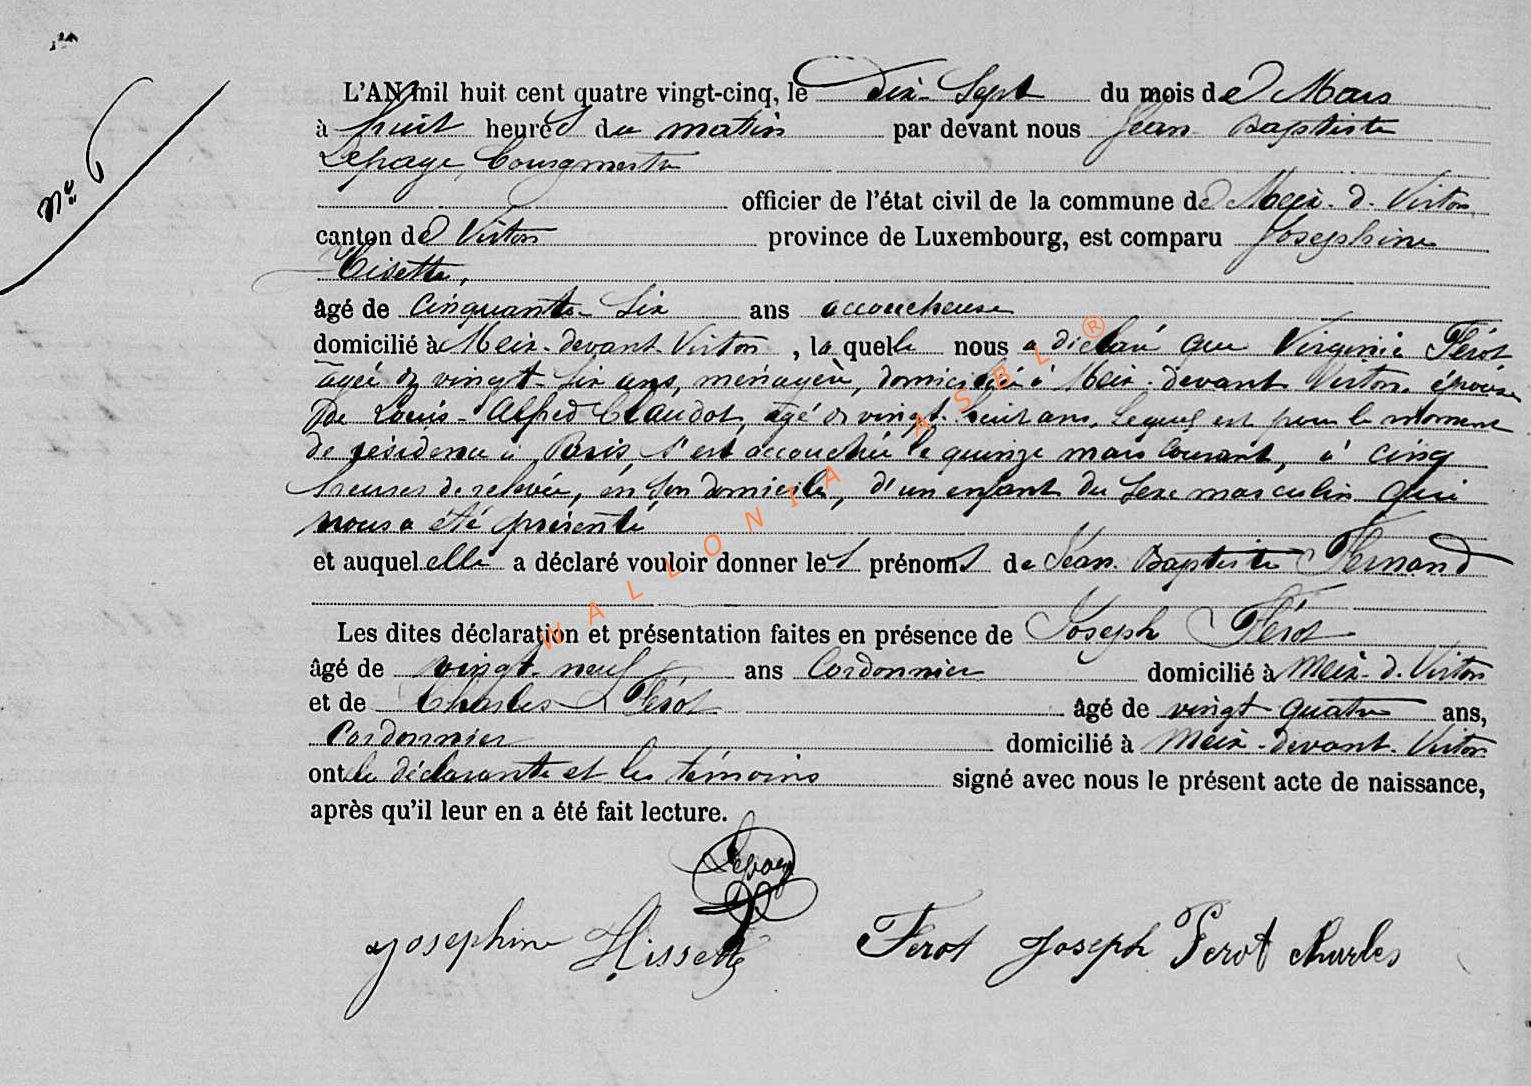 N° 6
L'AN mil huit cent quatre vingt-cinq, le dix-sept du mois de Mars
à huit heures du matin par devant nous Jean Baptiste
Lepage, bourgmestre
officier de l'état civil de la commune de Meix-d-Virton
canton de Virton province de Luxembourg, est comparu Josephine
Hisette,
âgé de cinquante-six ans accoucheuse
domicilié à Meix-devant-Virton, laquelle nous a déclaré que Virginie Férot
âgée de vingt-six ans, ménagère, domiciliée à Meix-devant Virton, épouse
de Louis-Alfred Claudot, âgé de vingt-huit ans, lequel est pour le moment
de résidence à Paris, s'est accouchée le quinze mars courant, à cinq
heures de relevée, en son domicile, d'un enfant du sexe masculin qui
nous a été présenté
et auquel elle a déclaré vouloir donner les prénoms de Jean Baptiste Fernand
Les dites déclaration et présentation faites en présence de Joseph Férot
âgé de vingt-neuf ans Cordonnier domicilié à Meix-d-Virton
et de Charles Férot âgé de vingt quatre ans,
Cordonnier domicilié à Meix-devant-Virton
ont la déclarante et les témoins signé avec nous le présent acte de naissance,
après qu'il leur en a été fait lecture.
Lepage
Josephine Hissette Ferot Joseph Ferot charles
WALLONIA ASBL ®